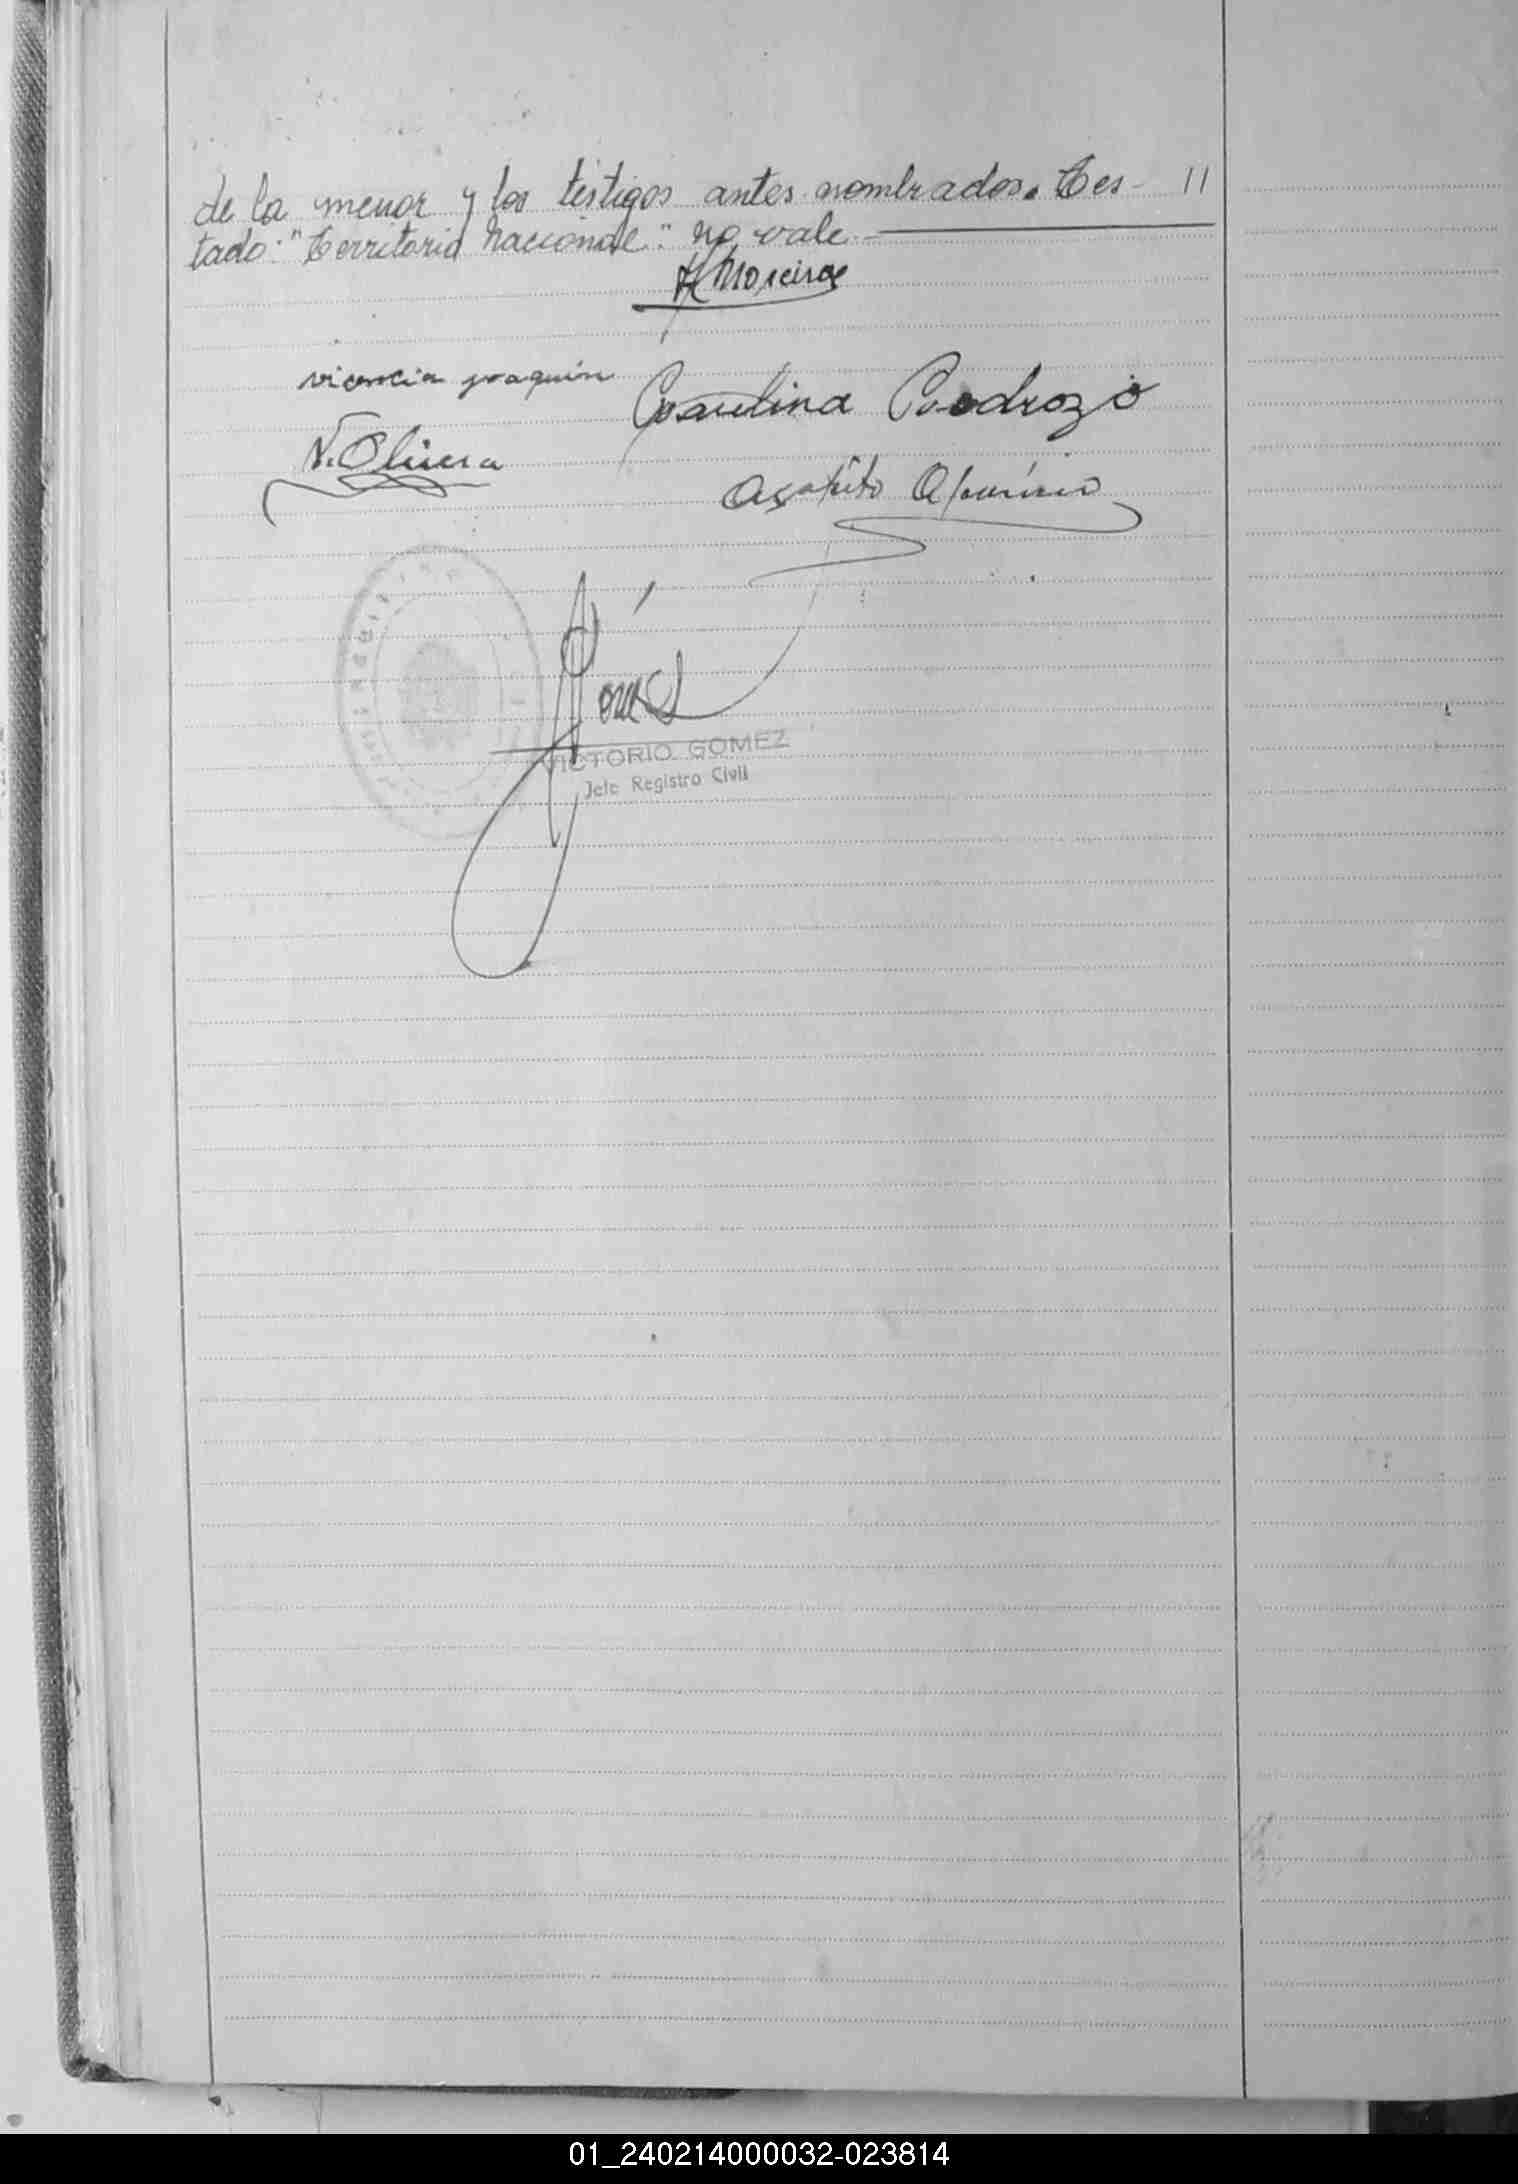 de la menor y los testigos antes nombrados. Tes- 11
tado: "Territorio Nacional": no vale.
Moreira
vicencia joaquin
Paulina Pedrozo
N. Olivera
Agapito Aparicio
Gómez
VICTORIO GOMEZ
Jefe Registro Civil
01_240214000032-023814